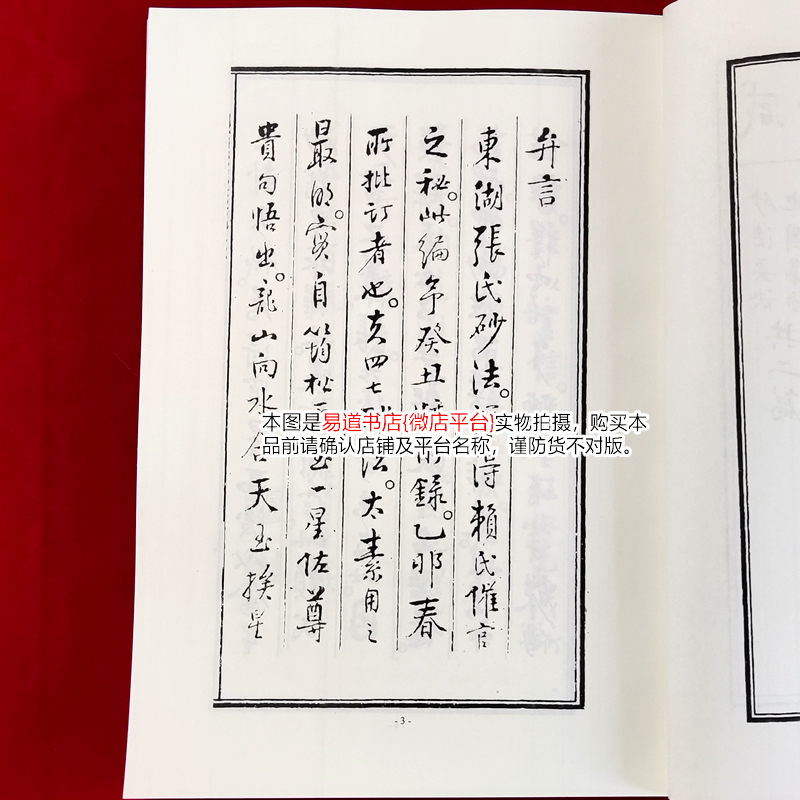 弁言
東湖張氏砂法。得賴氏催官
之秘。此編癸丑錄。乙卯春
所批訂者也。夫四七砂法。太素用之
最明。實自筠松玉一星佐尊
貴句悟出。龍山向水合天玉挨星
本图是易道书店{微店平台}实物拍摄，购买本
品前请确认店铺及平台名称，谨防货不对版。
- 3 -